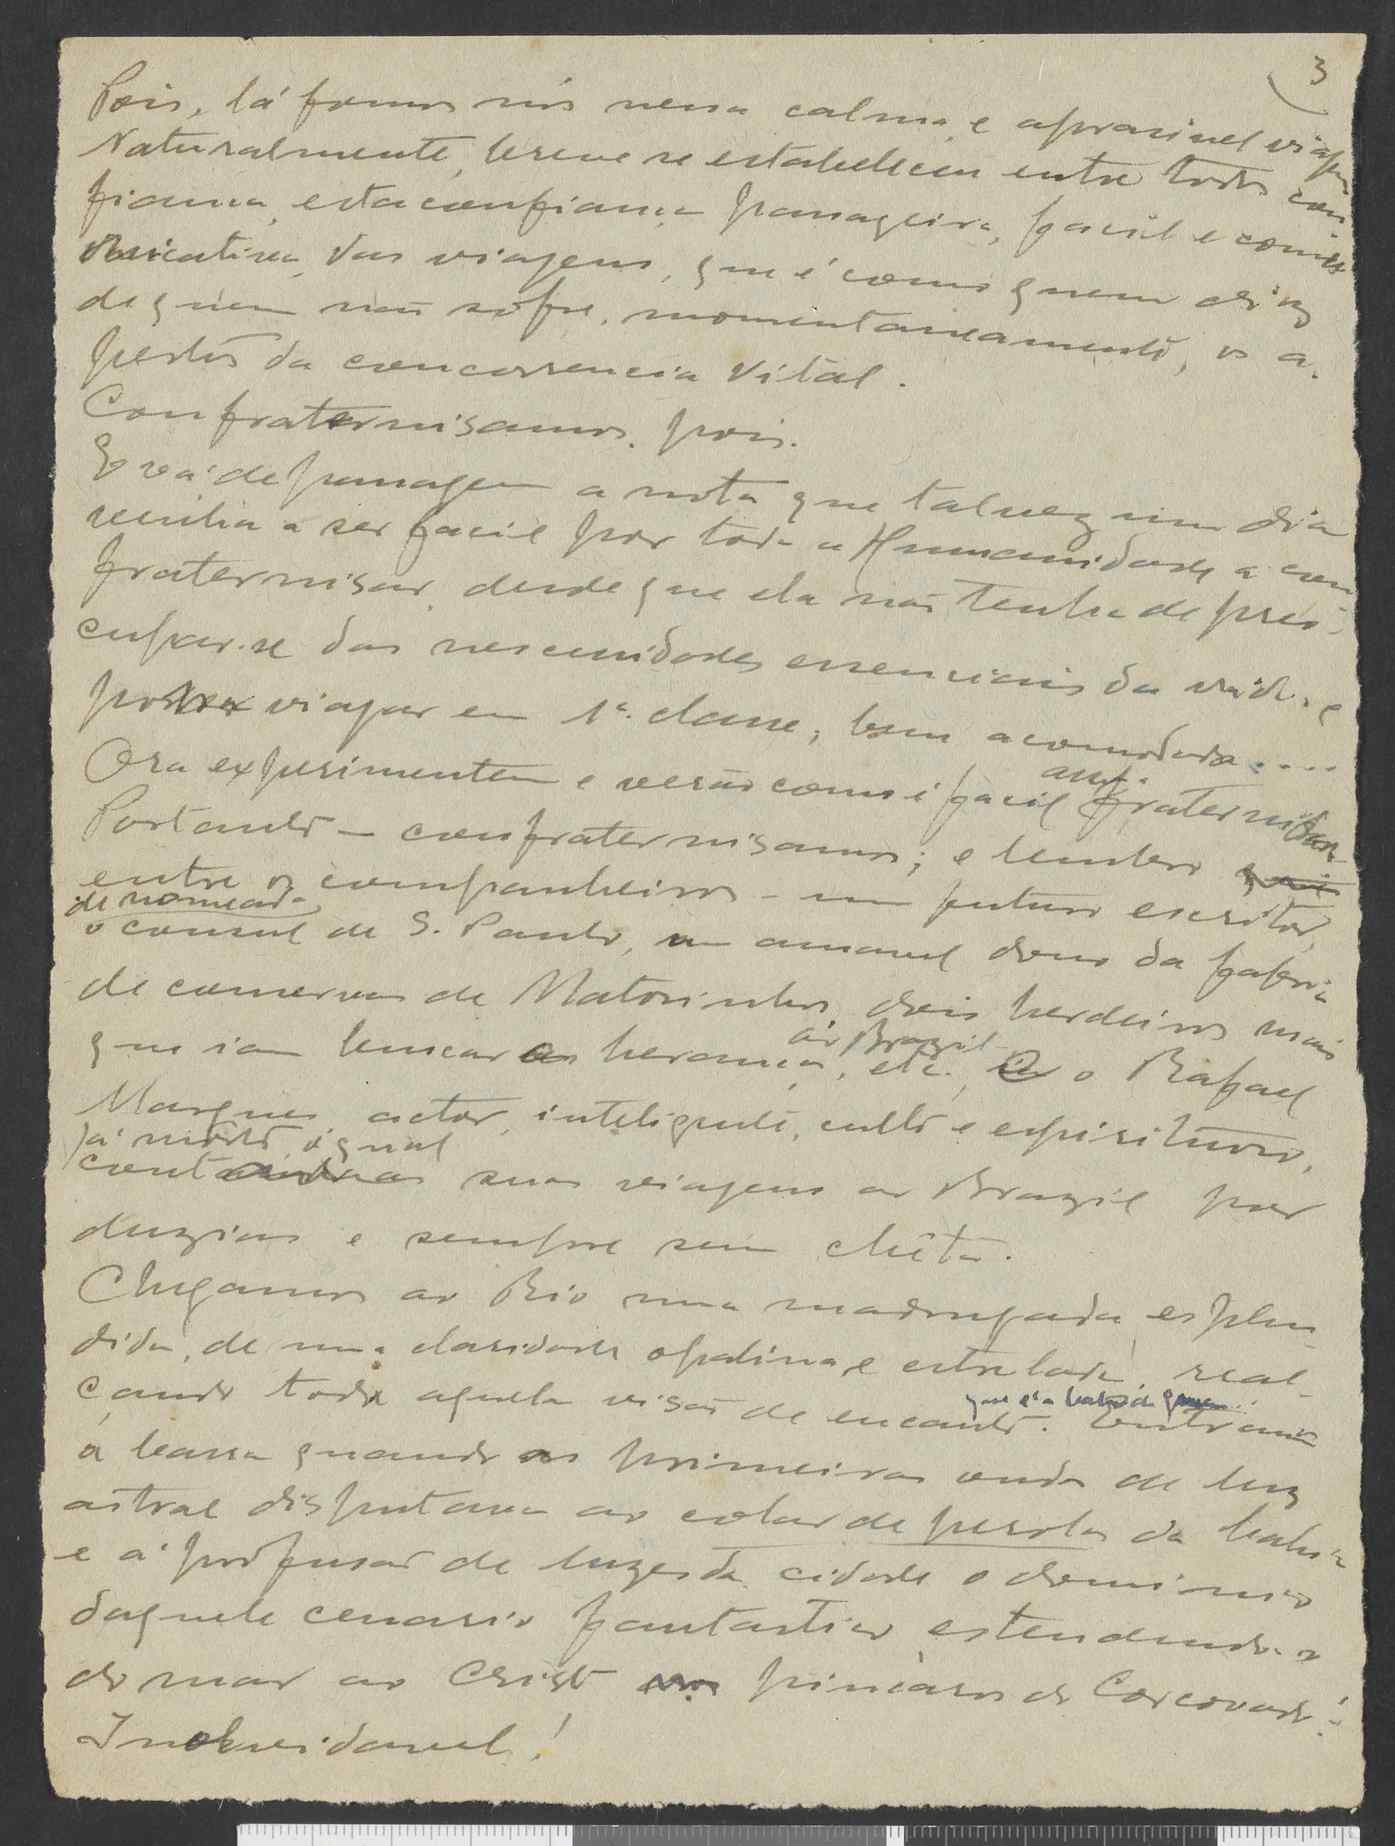 3
Pois, lá fomos nós nessa calma e aprasivel viagem
Naturalmente, breve se estabeleceu entre todos con-
fiança, esta confiança passageira, facil e comu-
nicativa, das viagens, que é como quem diz
de quem não sofre, momentaneamente, os a-
pertos da concorrencia vital.
Confraternisamos, pois.
E vá de passagem a nota que talvez um dia
venha a ser facil por toda a Humanidade a con-
fraternisar, desde que ela não tenha de preo-
cupar-se das necessidades essenciais da vida, e
possa viajar em 1ª. classe, bem acomodada....
Ora experimentem e verão como é facil a fraternidade
Portanto - confraternisamos; e lembro
entre os companheiros - um futuro escritor,
de nomeada,
o consul de S. Paulo, um amavel dono da fabrica
de conservas de Matosinhos, dois herdeiros mais
que iam buscar a herança, ao Brazil etc., e o Rafael
Marques actor, inteligente, culto e espirituoso,
já morto, o qual
conta as suas viagens ao Brazil por
duzias e sempre sem chêta.
Chegamos ao Rio numa madrugada esplen-
dida, de uma claridade opalina e estrelada, real-
çando toda aquela visão de encanto.
que é a bahia de Guan... Entramos
a barra quando as primeiras ondas de luz
astral disputava ao colar de perolas da bahia
e á profusão de luzes da cidade o dominio
daquele cenario fantastico, estendendo-se
do mar ao Cristo pincaros do Corcovado!
Inolvidavel!